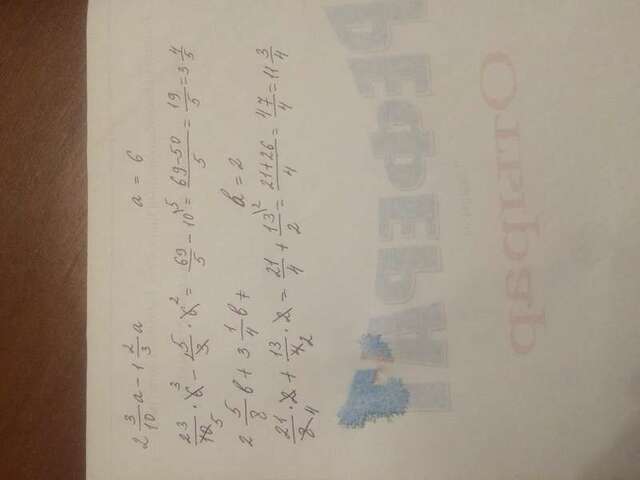 2 3/10 a - 1 2/3 a a = 6
23/10 5 · 6 3 - 5/3 · 6 2 = 69/5 - 10 \5 = 69-50/5 = 19/5 = 3 4/5
2 5/8 b + 3 1/4 b + b = 2
21/8 4 · 2 + 13/4 2 · 2 = 21/4 + 13/2 \2 = 21+26/4 = 47/4 = 11 3/4
РЕФЕРАТ
Отырар